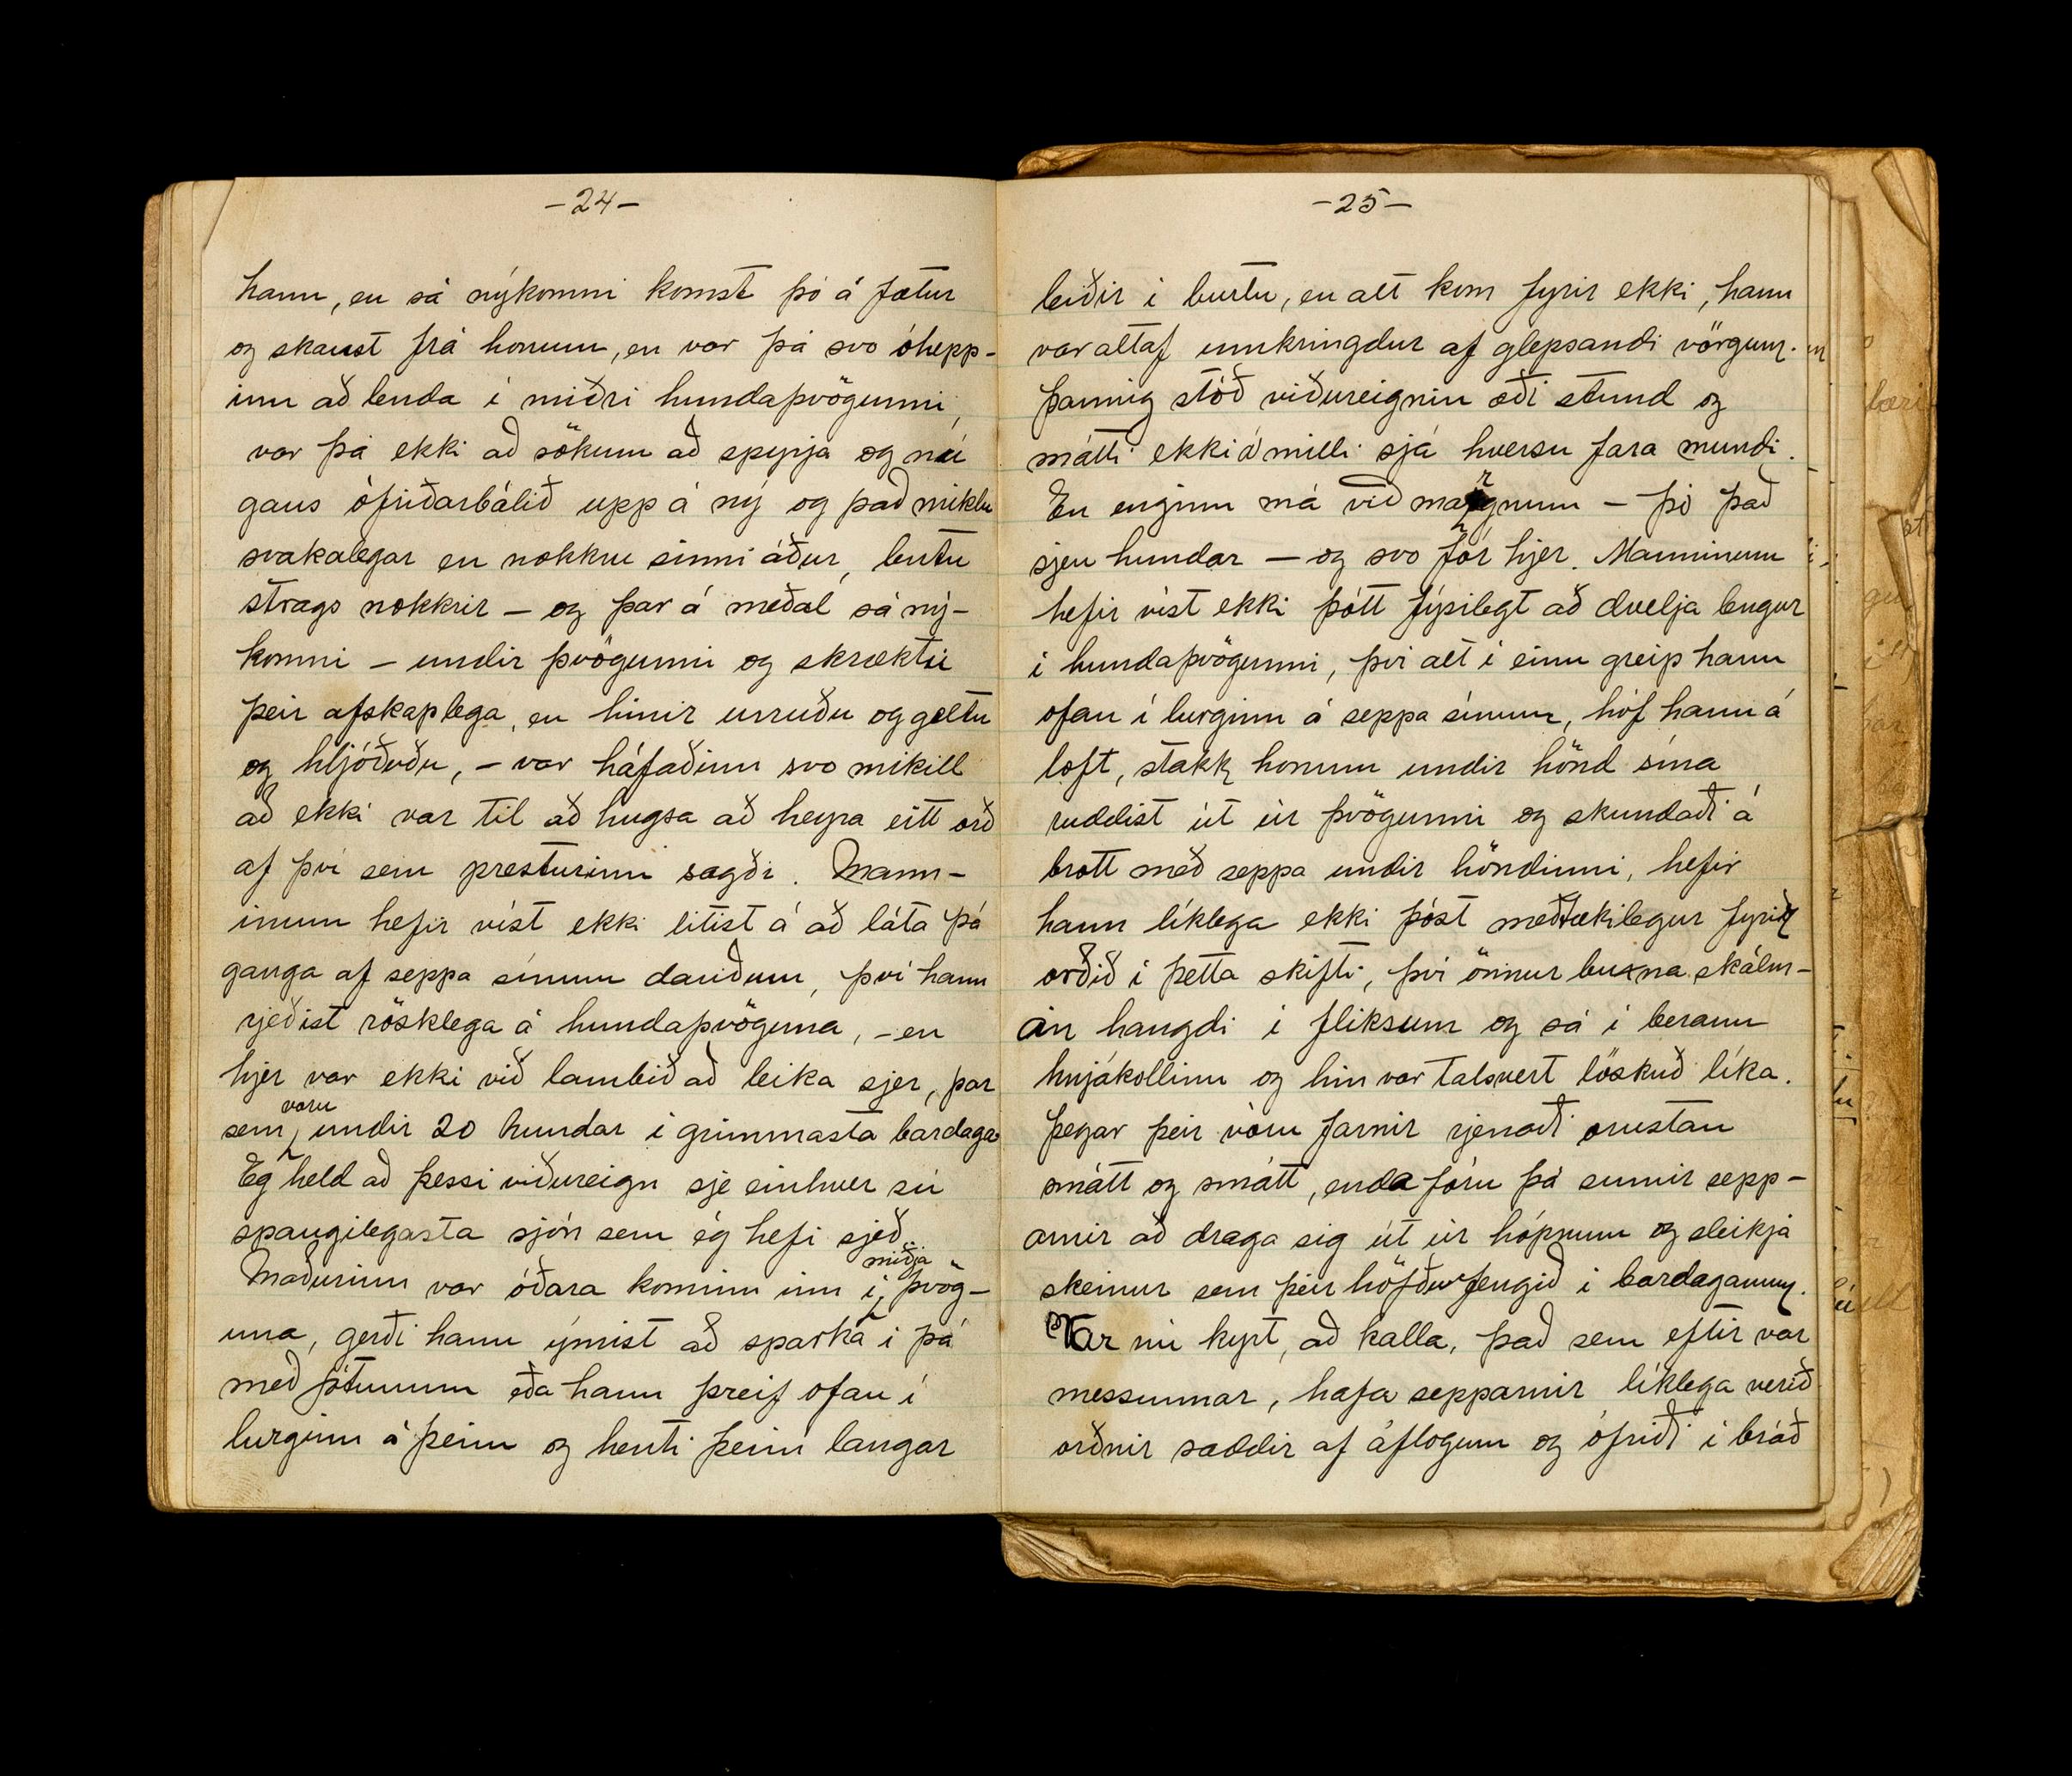 -24-
hann, en sá nýkomni komst þó á fætur
og skaust frá honum, en var þá svo óhepp-
inn að lenda í miðri hundaþvögunni,
var þá ekki að sökum að spyrja og nú
gaus ófriðarbálið upp á ný og það miklu
svakalegar en nokkru sinni áður, lentu
strags nokkrir – og þar á meðal sá ný-
komni – undir þvögunni og skræktu
þeir afskaplega, en hinir urruðu og geltu
og hljóðuðu, – var háfaðinn svo mikill
að ekki var til að hugsa að heyra eitt orð
af því sem presturinn sagði. Mann-
inum hefir víst ekki litist á að láta þá
ganga af seppa sínum dauðum, því hann
rjeðist rösklega á hundaþvöguna, – en
hjer var ekki við lambið að leika sjer, þar
sem voru undir 20 hundar í grimmasta bardaga
Eg held að þessi viðureign sje einhver sú
spaugilegasta sjón sem ég hefi sjeð.
Maðurinn var óðara kominn inn í miðja þvög-
una, gerði hann ýmist að sparka í þá
með fótunum eða hann þreif ofan í
lurginn á þeim og henti þeim langar
-25-
leiðir í burtu, en alt kom fyrir ekki, hann
var altaf umkringdur af glepsandi vörgum.
Þannig stóð viðureignin æði stund og
mátti ekki á milli sjá hversu fara mundi.
En enginn má við margnum – þó það
sjeu hundar – og svo fór hjer. Manninum
hefir víst ekki þótt fýsilegt að dvelja lengur
í hundaþvögunni, því alt í einu greip hann
ofan í lurginn á seppa sínum, hóf hann á
loft, stakk honum undir hönd sína
ruddist út úr þvögunni og skundaði á
brott með seppa undir höndinni, hefir
hann líklega ekki þóst meðtækilegur fyrir
orðið í þetta skifti, því önnur buxna skálm-
in hangdi í fliksum og sá í berann
hnjákollinn og hin var talsvert löskuð líka.
Þegar þeir vóru farnir rjenaði orustan
smátt og smátt, enda fóru þá sumir sepp-
arnir að draga sig út úr hópnum og sleikja
skeinur sem þeir höfðu fengið í bardaganum.
Var nú kyrt, að kalla, það sem eftir var
messunnar, hafa sepparnir líklega verið
orðnir saddir af áflogum og ófriði í bráð